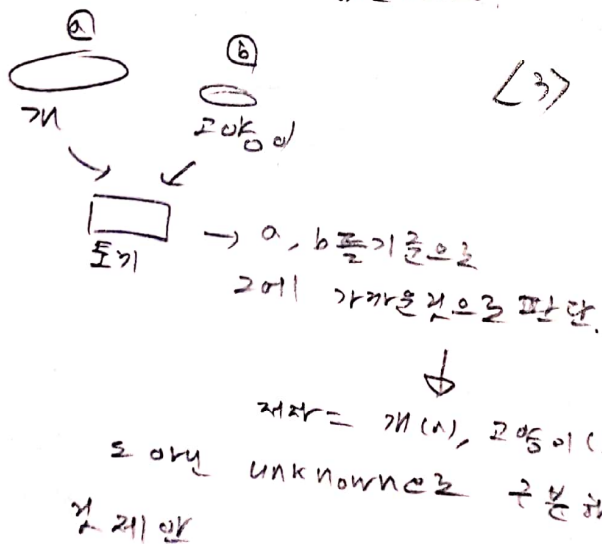 ⓐ
ⓑ
<3>
개
고양이
토끼
→ a, b를 기준으로
그에 가까운 것으로 판단.
저자는 개(a), 고양이(
도 아닌 unknown으로 구분하
것 제안